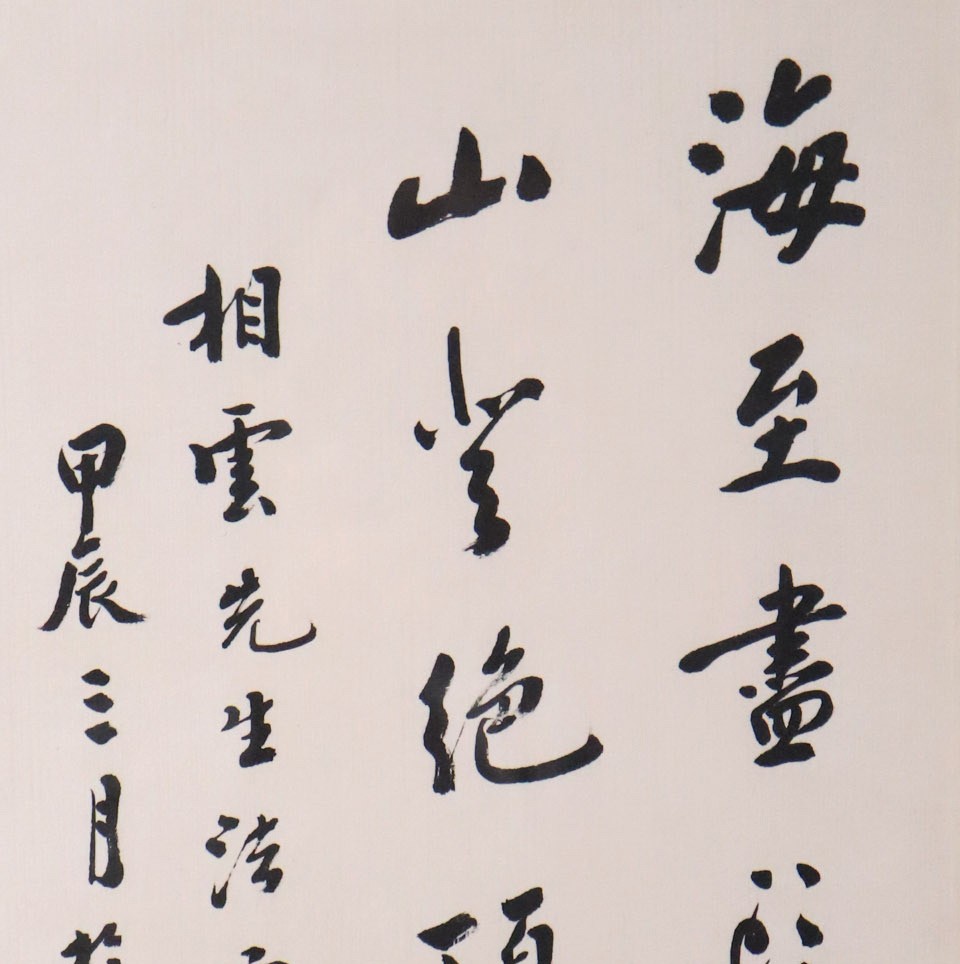 海至盡
山登絕頂
相雲先生法
甲辰三月於